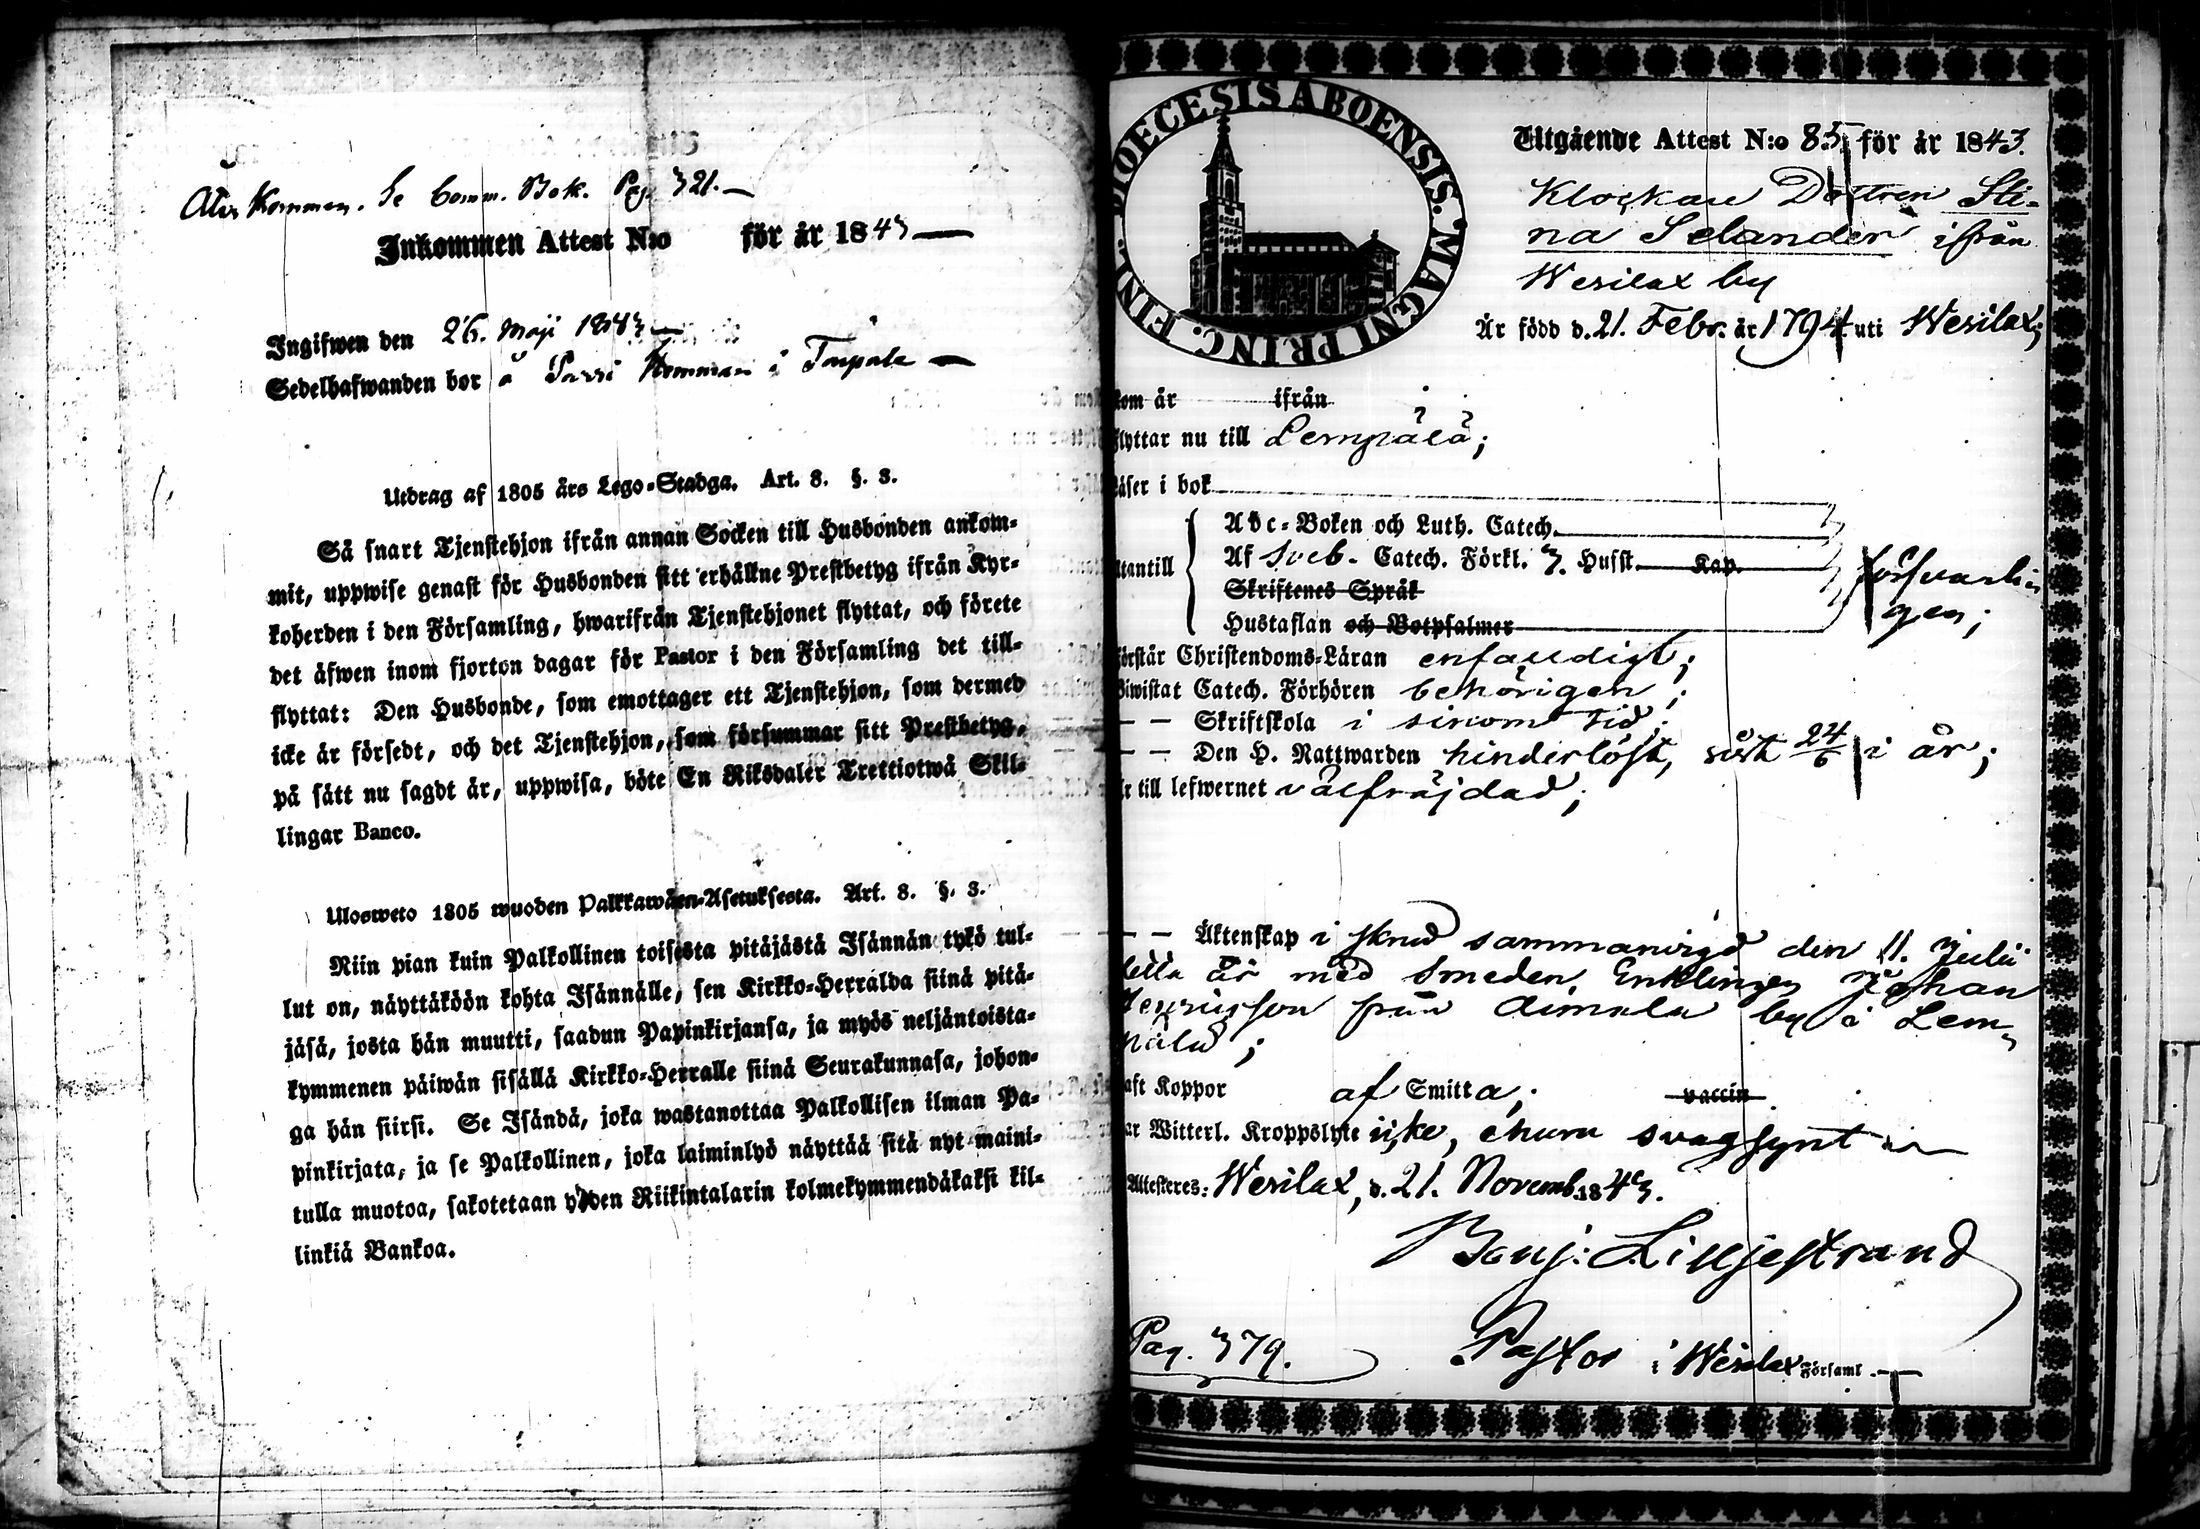 Återkommen. Se Comm. Bok. Pag. 321.
Inkommen Attest N:o för år 1843
Ingifwen den 26. Maji 1843
Sedelhafwanden bor å Sassi Hemman i Taipale
Utdrag af 1805 års Lego-Stadga. Art. 8. §. 3.
Så snart Tjenstehjon ifrån annan Socken till Husbonden ankom-
mit, uppwise genast för Husbonden sitt erhållne Prestbetyg ifrån Kyr-
koherden i den Församling, hwarifrån Tjenstehjonet flyttat, och förete
det äfwen inom fjorton dagar för Pastor i den Församling det till-
flyttat: Den Husbonde, som emottager ett Tjenstehjon, som dermed
icke är försedt, och det Tjenstehjon, som försummar sitt Prestbetyg,
på sätt nu sagdt är, uppwisa, böte En Riksdaler Trettiotwå Skil-
lingar Banco.
Ulosweto 1805 wuoden Palkkawäen-Asetuksesta. Art. 8. §. 3.
Niin pian kuin Palkollinen toisesta pitäjästä Isännän tykö tul-
lut on, näyttäköön kohta Isännälle, sen Kirkko-Herralda siinä pitä-
jäsä, josta hän muutti, saadun Papinkirjansa, ja myös neljäntoista-
kymmenen päiwän sisällä Kirkko-Herralle siinä Seurakunnasa, johon-
ga hän siirsi. Se Isändä, joka wastanottaa Palkollisen ilman Pa-
pinkirjata, ja se Palkollinen, joka laiminlyö näyttää sitä nyt maini-
tulla muotoa, sakotetaan yhden Riikintalarin kolmekymmendäkaksi kil-
linkiä Bankoa.
DIOECESIS ABOENSIS. MAGNI PRINC. FINL.
Utgående Attest N:o 85 för år 1843.
Klockare Dottren Sti-
na Selander ifrån
Wesilax by
Är född d. 21. Febr. år 1794. uti Wesilax;
kom år ifrån
flyttar nu till Lempälä;
Läser i bok
Utantill
Abc-Boken och Luth. Catech.
Af Sveb. Catech. Förkl. 3. Husst. Kap.
Skriftenes Språk
Hustaflan och Botpsalmer
försvarli-
gen;
Förstår Christendoms-Läran enfaldigt;
Biwistat Catech. Förhören behörigen;
— — Skriftskola i sinom tid;
— — Den H. Nattwarden hinderlöst, sist 24/6 i år;
Är till lefwernet välfräjdad;
— — Äktenskap i kyrka sammanvigd den 11. Julii
detta år med Smeden, Enklingen Johan
Henricsson från Aimala by i Lem-
pälä;
haft Koppor af Smitta; vaccin
har Witterl. Kroppslyte icke, ehuru svagsynt
Attesteres: Wesilax, d. 21. Novemb. 1843.
Benj: Liljestrand
Pag. 379. Pastor i Wesilax Församl.